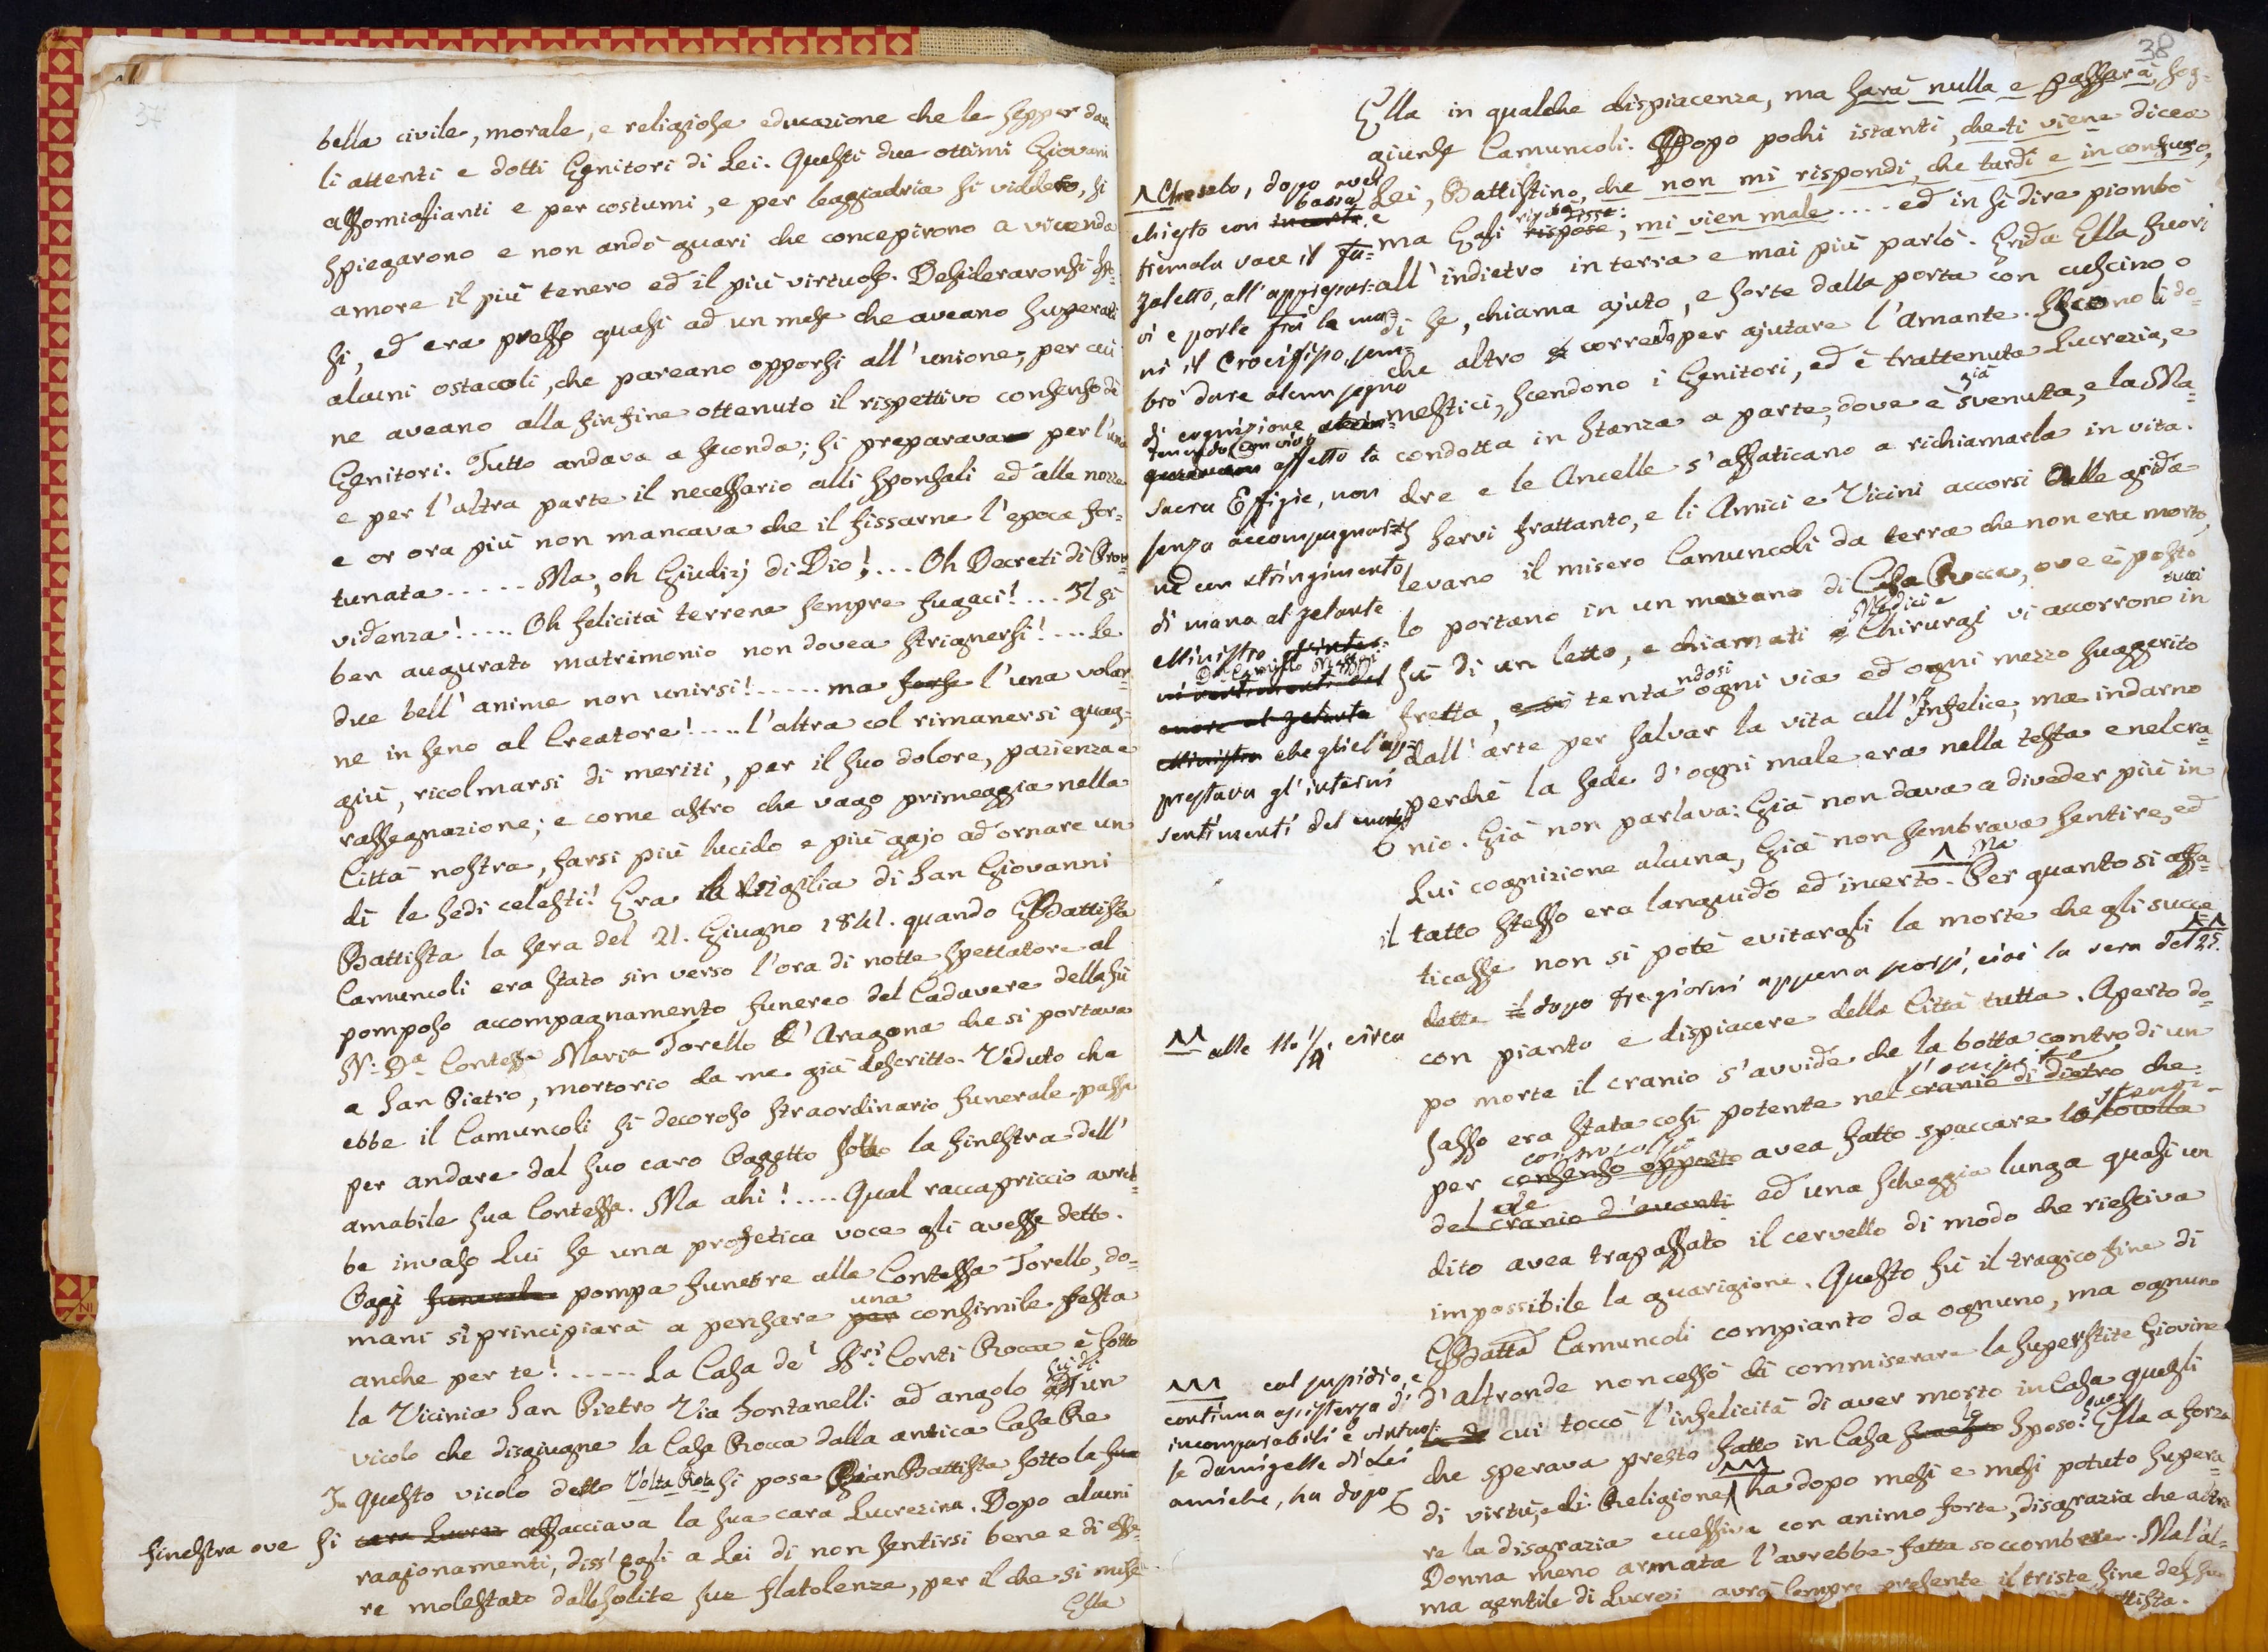 37
bella civile, morale, e religiosa educazione che le sepper dare
li attenti e dotti Genitori di Lei. Questi due ottimi Giovani
assomiglianti e per costumi, e per leggiadria si viddero, si
spiegarono e non andò guari che concepirono a vicenda
amore il più tenero ed il più virtuoso. Desideraronsi
si, ed era presso quasi ad un mese che aveano superati
alcuni ostacoli, che pareano opporsi all'unione, per cui
ne aveano alla fin fine ottenuto il rispettivo consenso di
Genitori. Tutto andava a seconda; si preparava per l'una
e per l'altra parte il necessario alli sponsali ed alle nozze
e or ora più non mancava che il fissarne l'epoca for-
tunata ..... Ma, oh Giudizj di Dio! ... Oh Decreti di Prov-
videnza! .... Oh felicità terrene sempre fugaci! ... Il sì
ben augurato matrimonio non dovea strignersi! .... Le
due bell'anime non unirsi! ..... ma forse l'una volar-
ne in seno al Creatore! .... l'altra col rimanersi quag-
giù, ricolmarsi di meriti, per il suo dolore, pazienza e
rassegnazione; e come astro che vago primeggia nella
Città nostra, farsi più lucido e più gajo ad ornare un
dì le sedi celesti! Era la vigilia di San Giovanni
Battista la sera del 21. Giugno 1841. quando GBattista
Camuncoli era stato sin verso l'ora di notte spettatore al
pomposo accompagnamento funereo del Cadavere della fù
N: Da. Contessa Maria Torello D'Aragona che si portava
a San Pietro, mortorio da me già descritto. Veduto che
ebbe il Camuncoli sì decoroso straordinario funerale passa
per andare dal suo caro Oggetto sotto la finestra dell'
amabile sua Contessa. Ma ahi! .... Qual raccapriccio avreb-
be invaso Lui se una profetica voce gli avesse detto.
Oggi funerale pompa funebre alla Contessa Torello, do-
mani si principiarà a pensare per una consimile festa
anche per te! ..... La Casa de' SSri. Conti Rocca è sotto
la Vicinia San Pietro Via Fontanelli ad angolo di un
vicolo che disgiugne la Casa Rocca dalla antica Casa Re
In questo vicolo detto Volta Rota si pose GianBattista sotto la sua
finestra ove si cara Lucrez affacciava la sua cara Lucrezina. Dopo alcuni
ragionamenti, diss'Egli a Lei di non sentirsi bene e di esse-
re molestato dalle solite sue flatolenze, per il che si mise
Ella
38
Ella in qualche dispiacenza, ma sarà nulla e passarà, sog-
giunse Camuncoli. Dopo pochi istanti, che ti viene dicea
Lei, Battistino, che non mi rispondi, che tardi e in confuso,
ma Egli rispose disse:, mi vien male .... ed in sì dire piombò
all'indietro in terra e mai più parlò. Grida Ella fuori
di se, chiama ajuto, e sorte dalla porta con cuscino o
che altro correndo per ajutare l'amante. Escono li do-
mestici, scendono i Genitori, ed è trattenuta Lucrezia, e
condotta in stanza a parte, dove è già svenuta, e la Ma-
dre e le Ancelle s'affaticano a richiamarla in vita.
Servi frattanto, e li Amici e Vicini accorsi alle grida
levano il misero Camuncoli da terra che non era morto,
lo portano in un mezzano di Casa Rocca, ove è posto
sù di un letto, e chiamati Medici e Chirurgi vi accorrono tutti in
fretta, e si tentandosi ogni via ed ogni mezzo suggerito
dall'arte per salvar la vita all'Infelice, ma indarno
perchè la sede d'ogni male era nella testa e nel cra-
nio. Già non parlava: Già non dava a diveder più in
Lui cognizione alcuna, Già non sembrava sentire, ed
il tatto stesso era languido ed incerto. Ma Per quanto si affa-
ticasse non si potè evitargli la morte che gli succe-
dette il dopo tre giorni appena scorsi, cioè la sera del 25.
con pianto e dispiacere della Città tutta. Aperto do-
po morte il cranio s'avvide che la botta contro di un
sasso era stata così potente nel cranio di dietro l'occipite che
per consenso opposto avea fatto spaccare la cocolla
del cranio d'avanti ed una scheggia lunga quasi un
dito avea trapassato il cervello di modo che riesciva
impossibile la guarigione. Questo fù il tragico fine di
GBatta Camuncoli compianto da ognuno, ma ognuno
d'altronde non cessò di commiserare la superstite Giovine
cui toccò l'infelicità di aver morto in Casa quegli
che sperava presto fatto in Casa suo Sposo! Ella a forza
di virtù, e di Religione, ha dopo mesi e mesi potuto supera-
re la disgrazia eccessiva con animo forte, disgrazia che altra
Donna meno armata l'avrebbe fatta soccombere. Ma l'al-
ma gentile di Lucrezi avrà sempre presente il triste fine del suo
ttista.
chiesto con incerta e bassa
tremola voce il
zoletto, all'appressar-
vi e porle frà le ma-
ni il Crocifisso, sem-
brò dare alcun segno
di cognizione
con vivo affetto la
sacra Effigie, non
senza accompagnarsi
ed un stringimento
di mano al zelante
Ministro
Ministro che gliel'ap-
prestava gl'interni
sentimenti del cuore
alle 11. 1/4. circa
col sussidio, e
continua assistenza di
incomparabili e virtuo-
se damigelle di Lei
amiche, ha dopo